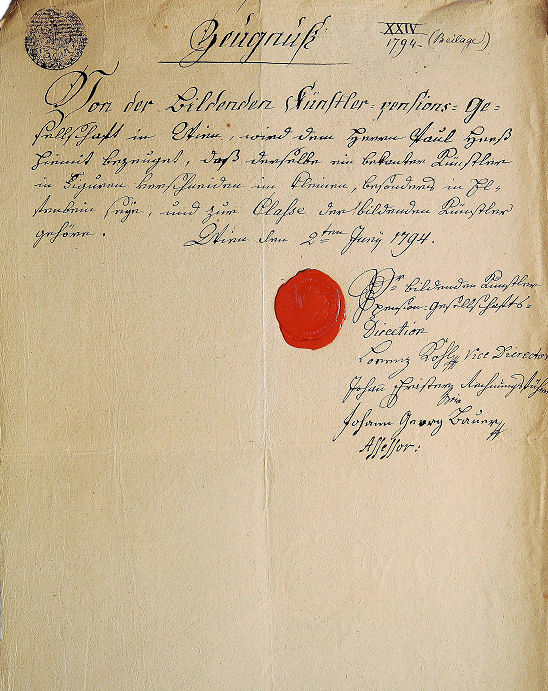 Zeugnuß
XXIV
1794 (Beilage)
Von der bildenden Künstler-pensions-Ge-
sellschaft in Wien, wird dem Herrn Paul Heeß
hiemit bezeuget, daß derselbe ein bekanter Künstler
in Figuren verschneiden im kleinen, besonders in El-
fenbein seye, und zur Classe der bildenden Künstler
gehöre.
Wien den 2ten Juny 1794.
Dr bildenden Künstler
Pension-Gesellschafts-
Direction
Lorenz Kohl Vice Director
Johann Christen Rechnungsführer
Johann Georg Bauer
Assessor.